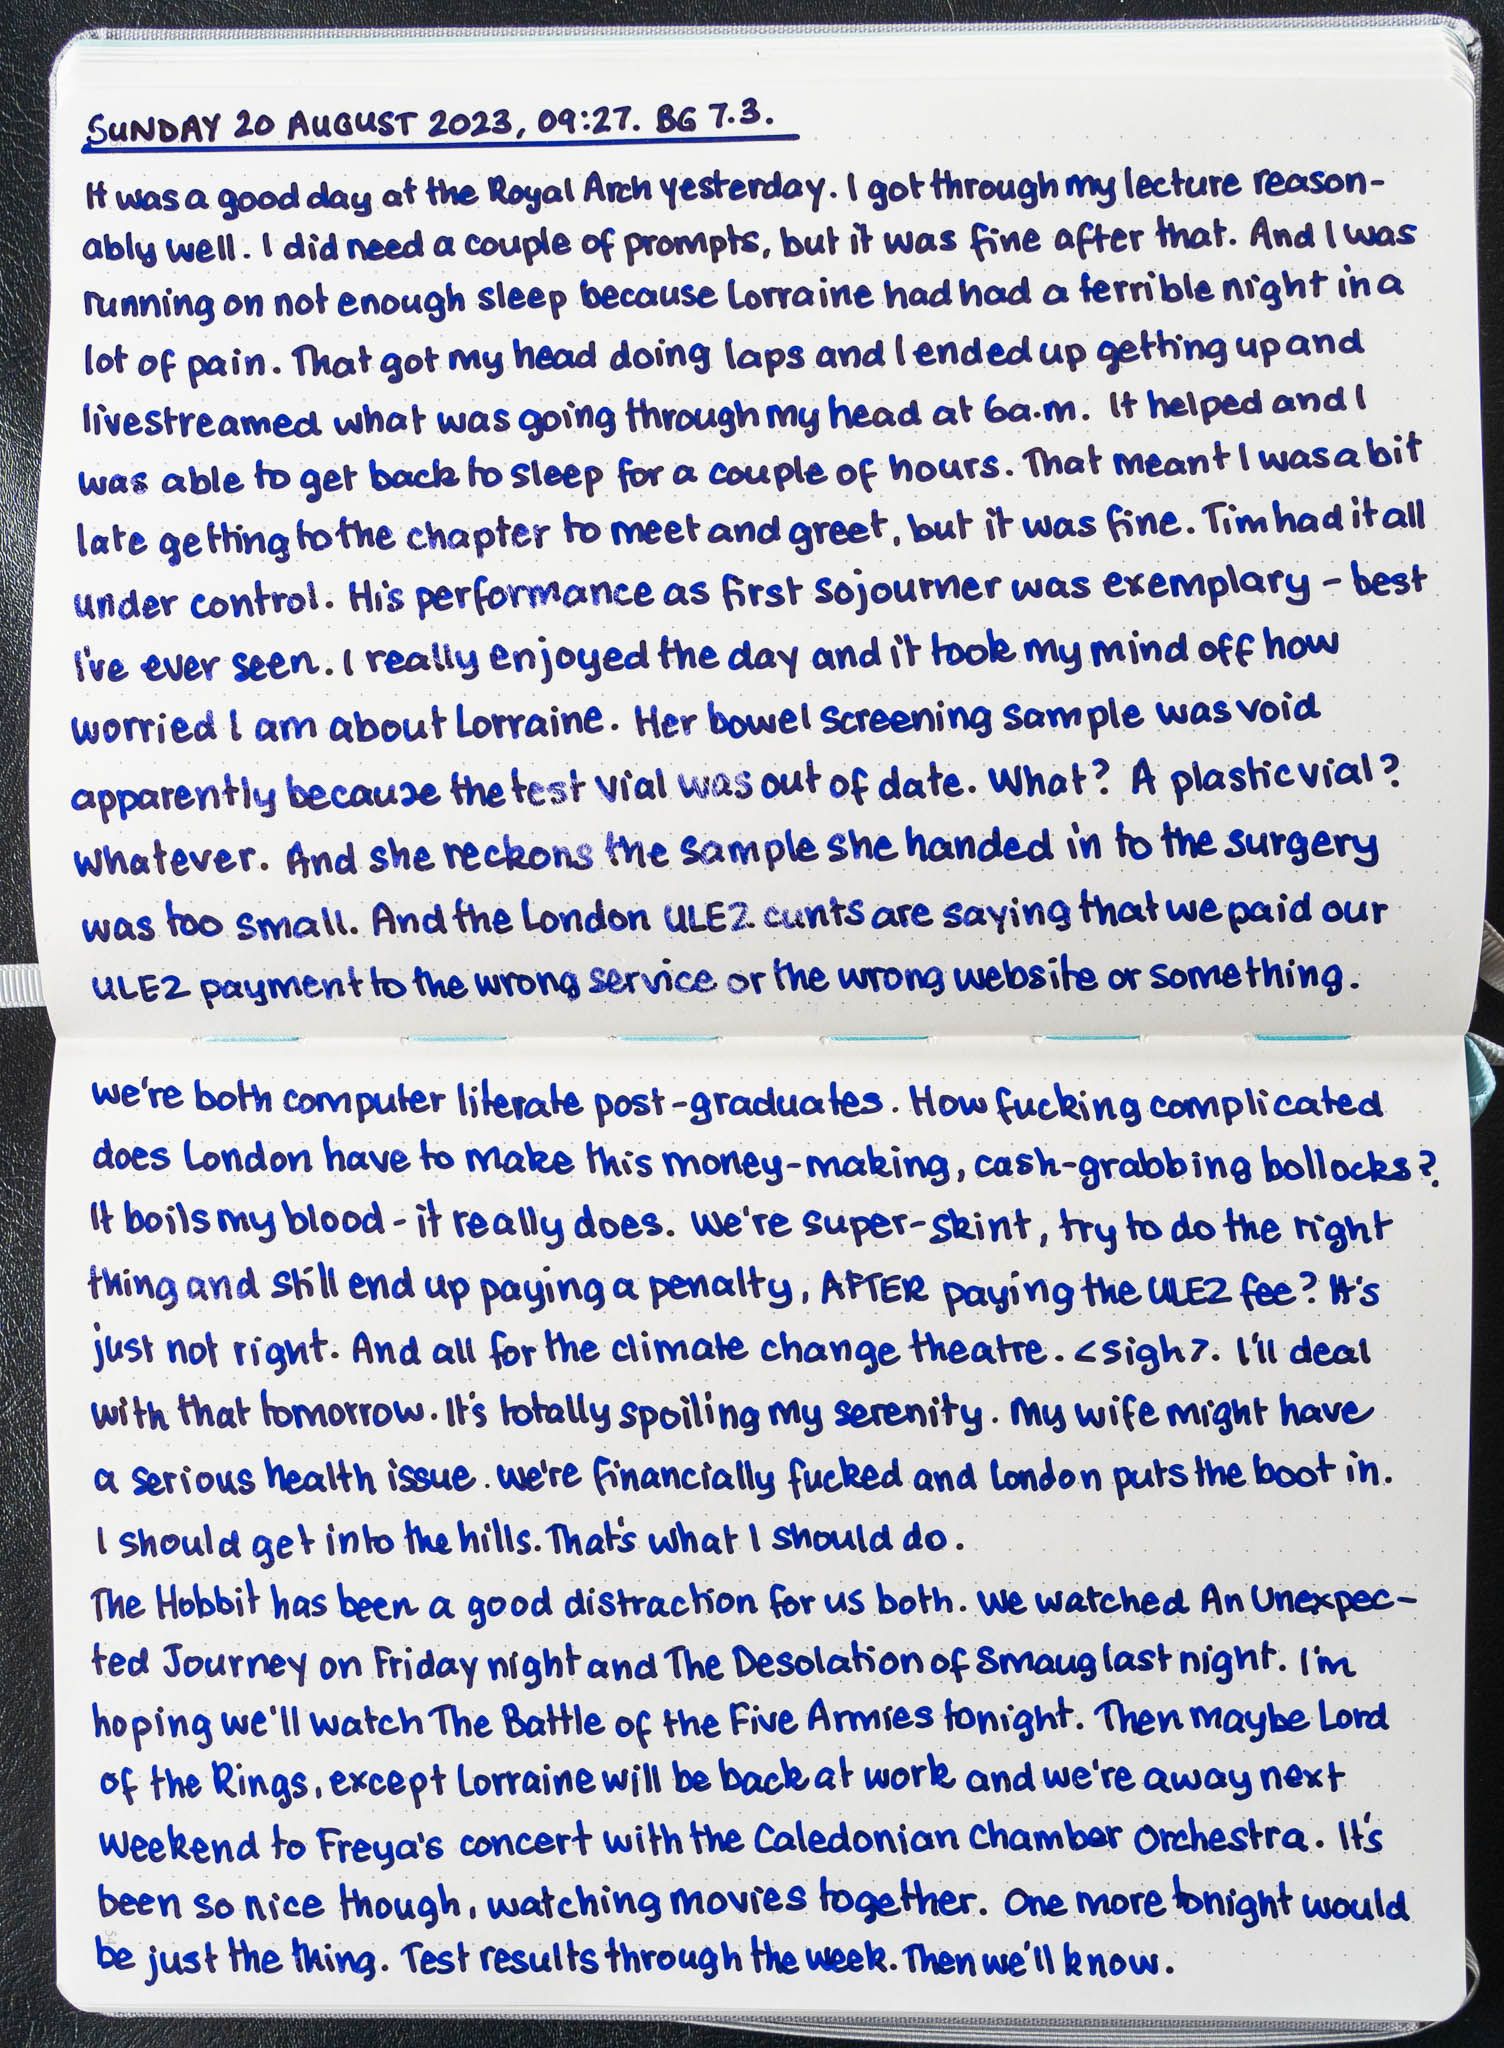 SUNDAY 20 AUGUST 2023, 09:27. BG 7.3.
It was a good day at the Royal Arch yesterday. I got through my lecture reason-
ably well. I did need a couple of prompts, but it was fine after that. And I was
running on not enough sleep because Lorraine had had a terrible night in a
lot of pain. That got my head doing laps and I ended up getting up and
livestreamed what was going through my head at 6a.m. It helped and I
was able to get back to sleep for a couple of hours. That meant I was a bit
late getting to the chapter to meet and greet, but it was fine. Tim had it all
under control. His performance as first sojourner was exemplary – best
I've ever seen. I really enjoyed the day and it took my mind off how
worried I am about Lorraine. Her bowel screening sample was void
apparently because the test vial was out of date. What? A plastic vial?
Whatever. And she reckons the sample she handed in to the surgery
was too small. And the London ULEZ cunts are saying that we paid our
ULEZ payment to the wrong service or the wrong website or something.
We're both computer literate post-graduates. How fucking complicated
does London have to make this money-making, cash-grabbing bollocks?
It boils my blood - it really does. We're super-skint, try to do the right
thing and still end up paying a penalty, AFTER paying the ULEZ fee? It's
just not right. And all for the climate change theatre. <sigh>. I'll deal
with that tomorrow. It's totally spoiling my serenity. My wife might have
a serious health issue. We're financially fucked and London puts the boot in.
I should get into the hills. That's what I should do.
The Hobbit has been a good distraction for us both. We watched An Unexpec-
ted Journey on Friday night and The Desolation of Smaug last night. I'm
hoping we'll watch The Battle of the Five Armies tonight. Then maybe Lord
of the Rings, except Lorraine will be back at work and we're away next
weekend to Freya's concert with the Caledonian Chamber Orchestra. It's
been so nice though, watching movies together. One more tonight would
be just the thing. Test results through the week. Then we'll know.